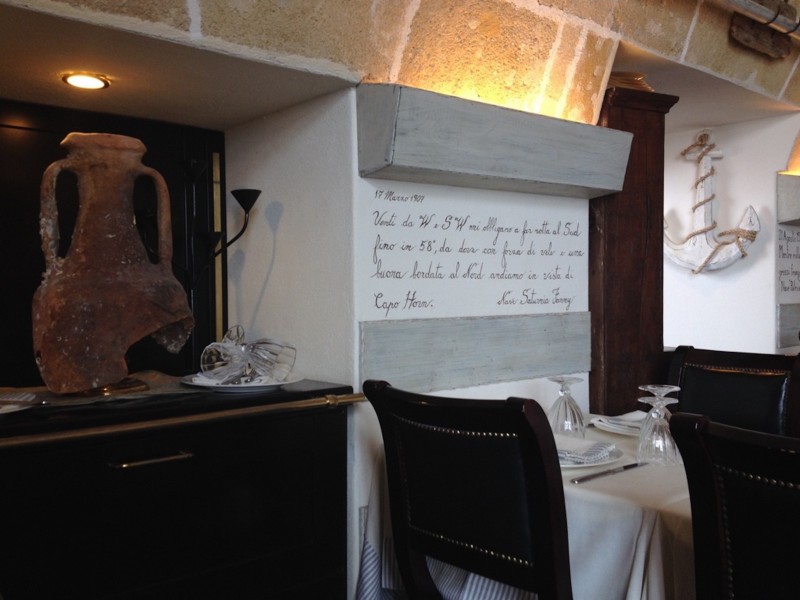 17 Marzo 1907
Venti da W e SW mi obbligano a far rotta al Sud
fino in 58°, da dove con forza di vele e una
buona bordata al Nord andiamo in vista di
Capo Horn. Navi Saturnia Fanny